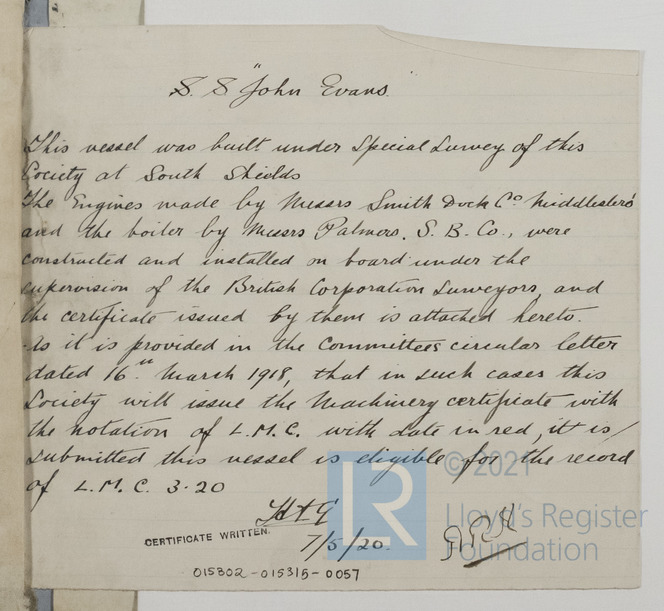 S. S "John Evans"
This vessel was built under Special Survey of this
Society at South Shields
The Engines made by Messrs Smith Dock Co. Middlesbro'
and the boiler by Messrs Palmers. S. B. Co., were
constructed and installed on board under the
supervision of the British Corporation Surveyors and
the certificate issued by them is attached hereto.
As it is provided in the Committees circular letter
dated 16th March 1918, that in such cases this
Society will issue the Machinery certificate with
the notation of L.M.C. with date in red, it is
submitted this vessel is eligible for the record
of L.M.C. 3-20
7/5/20.
CERTIFICATE WRITTEN.
015302-015315-0057
LR
© 2021
Lloyd's Register
Foundation